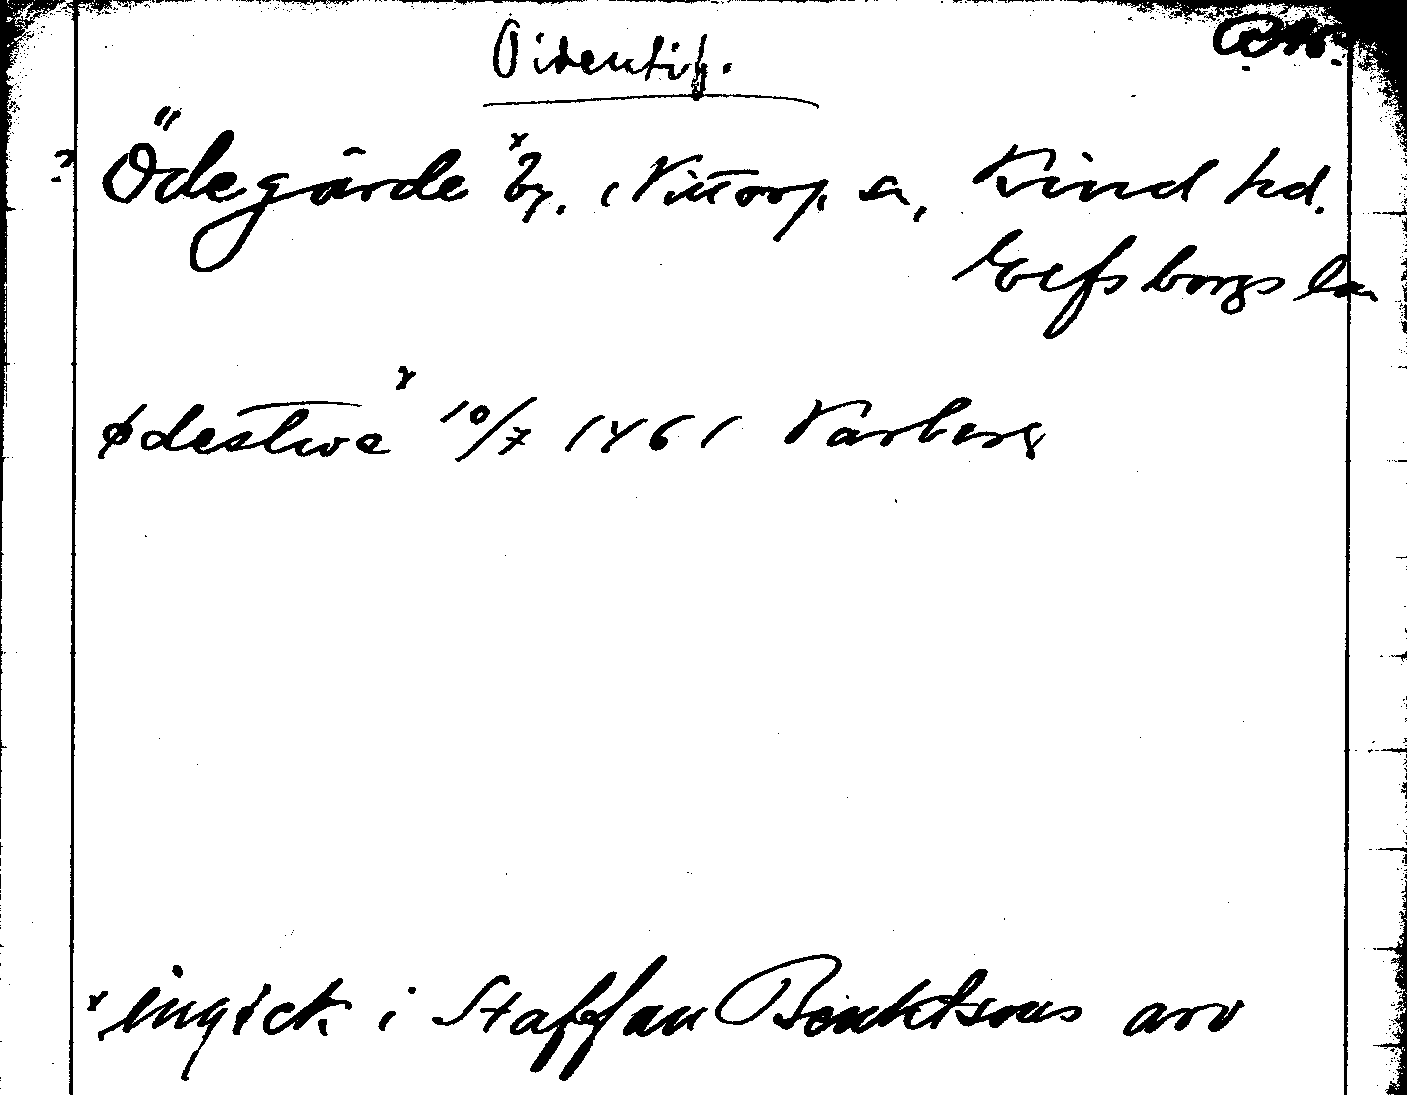 Oidentif.
? Ödegärde x by, i Nittorp sn, Kind hd.
Elfsborgs län
ødestwe x 10/7 1461 Varberg
x ingick i Staffan Benktsons arv